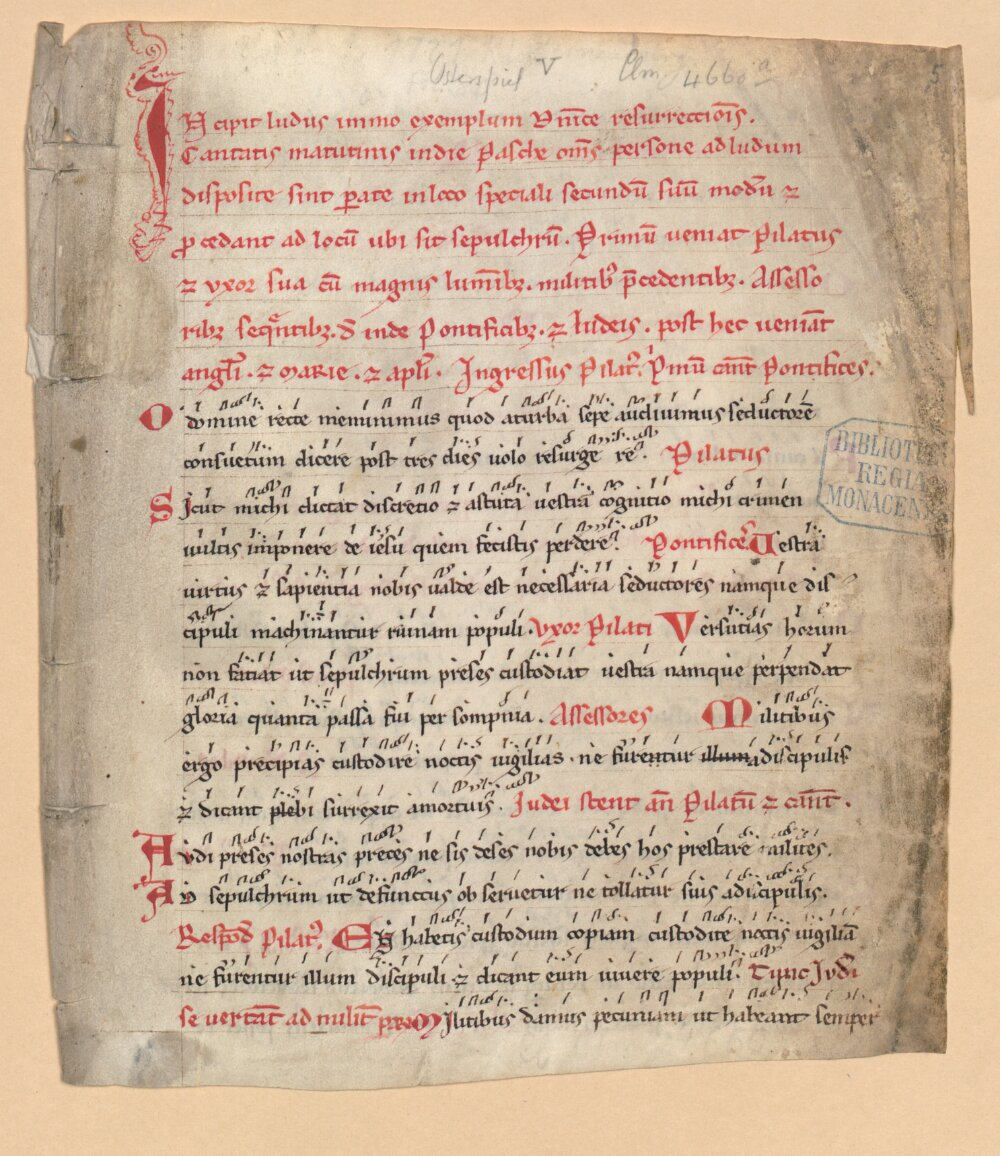 Osterspiel V Clm 4660a
5
Incipit ludus immo exemplum Dn̄ice resurrectiōis.
Cantatis matutinis in die Pasche om̄s persone ad ludum
disposite sint ꝑate in loco speciali secundū suū modū ⁊
ꝓcedant ad locū ubi sit sepulchrū. Primū veniat Pilatus
⁊ vxor sua cū magnis lumībꝫ. militibꝰ p̄cedentibꝫ. Assesso
ribꝫ seqͣntibꝫ. d inde Pontificibꝫ. ⁊ Iudeis. post hec veniāt
angl̄i. ⁊ marie. ⁊ apl̄i. Ingressus Pilatꝰ. Pͥmū cānt Pontifices.
O domine recte meminimus quod a turba sepe audiuimus seductorē
consuetum dicere post tres dies uolo resurge re. Pilatus
Sicut michi dictat discretio ⁊ astuta uestra cognitio michi crimen
uultis imponere de iesu quem fecistis perdere. Pontifices Uestra
uirtus ⁊ sapientia nobis ualde est necessaria seductores namque dis
cipuli machinantur ruinam populi. Vxor Pilati Versutias horum
non fatiat ut sepulchrum preses custodiat uestra namque perpendat
gloria quanta passa fui per sompnia. Assessores Militibus
ergo precipias custodire noctis uigilias. ne furentur illum a discipulis
⁊ dicant plebi surrexit a mortuis. Judei stent an̄ Pilatū ⁊ cānt.
Audi preses nostras preces ne sis deses nobis debes hos prestare milites.
Ad sepulchrum ut defunctus ob seruetur ne tollatur suis a discipulis.
Respōd Pilatꝰ. En habetis custodum copiam custodite noctis uigiliā
ne furentur illum discipuli ⁊ dicant eum uiuere populi. Tunc Jvdei
se vertāt ad milit̄ Militibus damus pecuniam ut habeant semper
BIBLIOTHE
REGIA
MONACENS